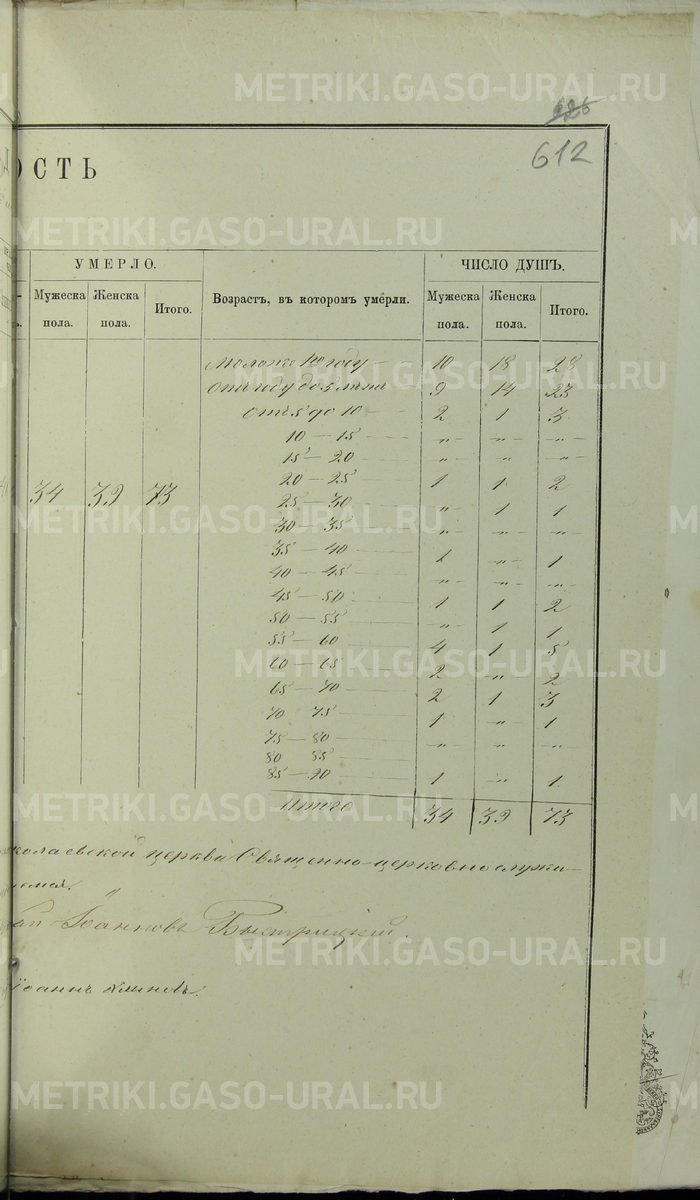 METRIKI.GASO-URAL.RU
612
ОСТЬ
УМЕРЛО. ЧИСЛО ДУШЪ.
Мужеска пола. Женска пола. Итого. Возрастъ, въ котором умерли. Мужеска пола. Женска пола. Итого.
Моложе 1го году 10 18 28
Отъ году до 5 лѣтъ 9 14 23
Отъ 5 до 10 2 1 3
10 — 15 „ „ „
15 — 20 „ „ „
20 — 25 1 1 2
34 39 73
25 — 30 „ 1 1
30 — 35 „ „ „
35 — 40 1 „ 1
40 — 45 „ „ „
45 — 50 1 1 2
50 — 55 „ 1 1
55 — 60 4 1 5
60 — 65 2 „ 2
65 — 70 2 1 3
70 75 1 „ 1
75 — 80 „ „ „
80 85
85 — 90 1 „ 1
Итого 34 39 73
колаевской церкви Священно-церковнослужи-
Іоанновъ Быстрицкій.
Іоаннъ